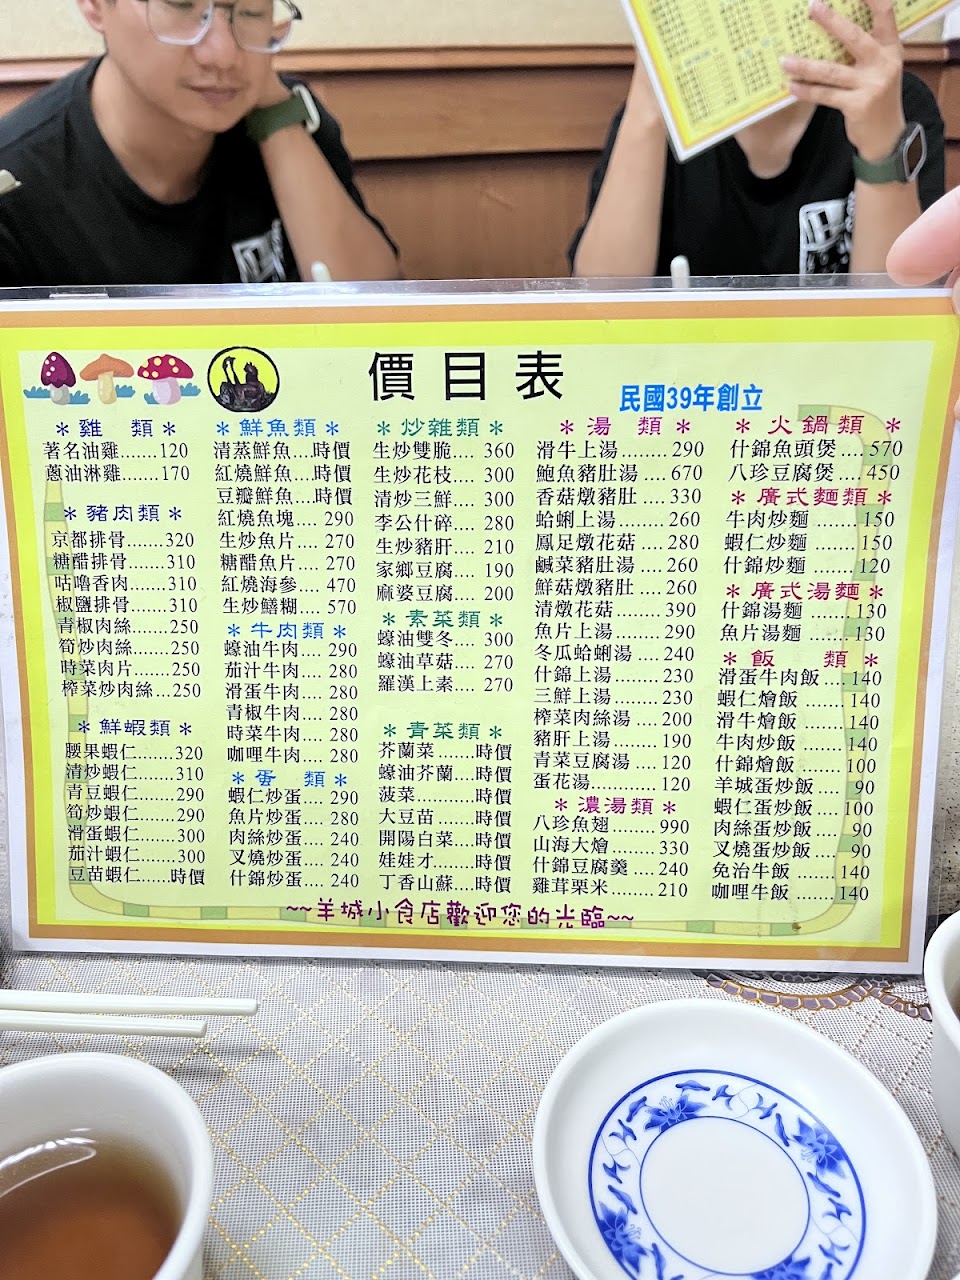 價目表
民國39年創立
＊雞 類＊
著名油雞.......120
蔥油淋雞.......170
＊豬肉類＊
京都排骨.......320
糖醋排骨.......310
咕嚕香肉.......310
椒鹽排骨.......310
青椒肉絲.......250
筍炒肉絲.......250
時菜肉片.......250
榨菜炒肉絲...250
＊鮮蝦類＊
腰果蝦仁.......320
清炒蝦仁.......310
青豆蝦仁.......290
筍炒蝦仁.......290
滑蛋蝦仁.......300
茄汁蝦仁.......300
豆苗蝦仁......時價
＊鮮魚類＊
清蒸鮮魚...時價
紅燒鮮魚...時價
豆瓣鮮魚...時價
紅燒魚塊.... 290
生炒魚片.... 270
糖醋魚片.... 270
紅燒海參.... 470
生炒鱔糊.... 570
＊牛肉類＊
蠔油牛肉.... 290
茄汁牛肉.... 280
滑蛋牛肉.... 280
青椒牛肉.... 280
時菜牛肉.... 280
咖哩牛肉.... 280
＊蛋 類＊
蝦仁炒蛋.... 290
魚片炒蛋.... 280
肉絲炒蛋.... 240
叉燒炒蛋.... 240
什錦炒蛋.... 240
＊炒雜類＊
生炒雙脆.... 360
生炒花枝.... 300
清炒三鮮.... 300
李公什碎.... 280
生炒豬肝.... 210
家鄉豆腐.... 190
麻婆豆腐.... 200
＊素菜類＊
蠔油雙冬.... 300
蠔油草菇.... 270
羅漢上素.... 270
＊青菜類＊
芥蘭菜......時價
蠔油芥蘭...時價
菠菜..........時價
大豆苗......時價
開陽白菜...時價
娃娃才......時價
丁香山蘇...時價
＊湯 類＊
滑牛上湯........290
鮑魚豬肚湯....670
香菇燉豬肚....330
蛤蜊上湯........260
鳳足燉花菇....280
鹹菜豬肚湯....260
鮮菇燉豬肚....260
清燉花菇........390
魚片上湯........290
冬瓜蛤蜊湯....240
什錦上湯........230
三鮮上湯........230
榨菜肉絲湯....200
豬肝上湯........190
青菜豆腐湯....120
蛋花湯............120
＊濃湯類＊
八珍魚翅........990
山海大燴........330
什錦豆腐羹....240
雞茸栗米........210
＊火鍋類＊
什錦魚頭煲....570
八珍豆腐煲....450
＊廣式麵類＊
牛肉炒麵.......150
蝦仁炒麵.......150
什錦炒麵.......120
＊廣式湯麵＊
什錦湯麵.......130
魚片湯麵.......130
＊飯 類＊
滑蛋牛肉飯....140
蝦仁燴飯.......140
滑牛燴飯.......140
牛肉炒飯.......140
什錦燴飯.......100
羊城蛋炒飯.... 90
蝦仁蛋炒飯....100
肉絲蛋炒飯.... 90
叉燒蛋炒飯.... 90
免治牛飯.......140
咖哩牛飯.......140
~~羊城小食店歡迎您的光臨~~